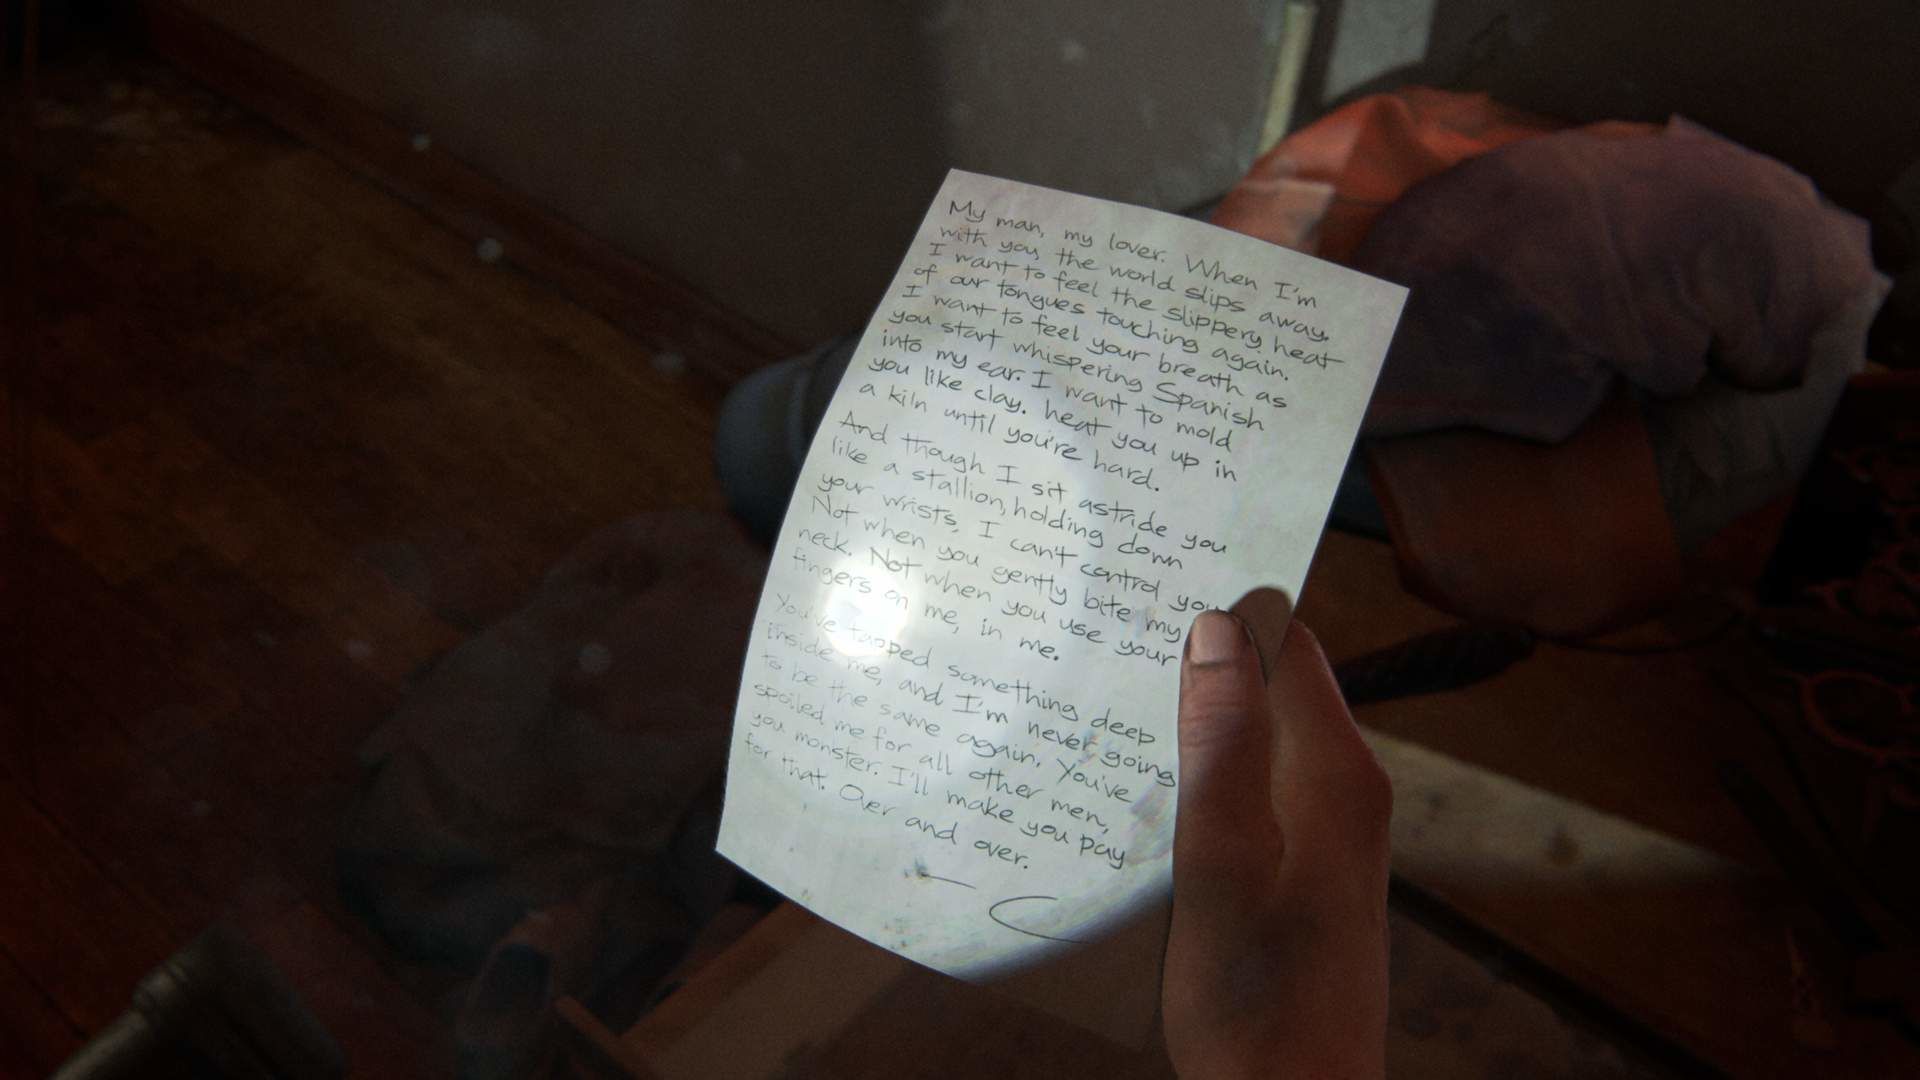 My man, my lover. When I'm
with you, the world slips away.
I want to feel the slippery heat
of our tongues touching again.
I want to feel your breath as
you start whispering Spanish
into my ear. I want to mold
you like clay. heat you up in
a kiln until you're hard.
And though I sit astride you
like a stallion, holding down
your wrists, I can't control you
Not when you gently bite my
neck. Not when you use your
fingers on me, in me.
You've tapped something deep
inside me, and I'm never going
to be the same again. You've
spoiled me for all other men,
you monster. I'll make you pay
for that. Over and over.
- C